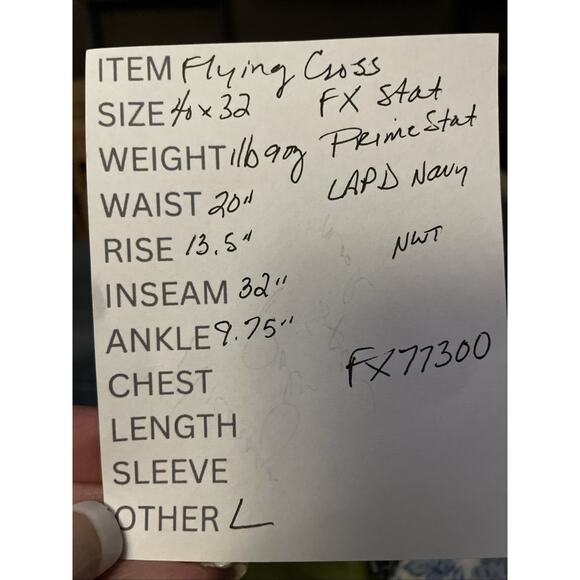 ITEM Flying Cross
SIZE 40x32 FX Stat
WEIGHT 1lb 9oz Prime Stat
WAIST 20" LAPD Navy
RISE 13.5" NWT
INSEAM 32"
ANKLE 9.75"
CHEST FX77300
LENGTH
SLEEVE
OTHER L